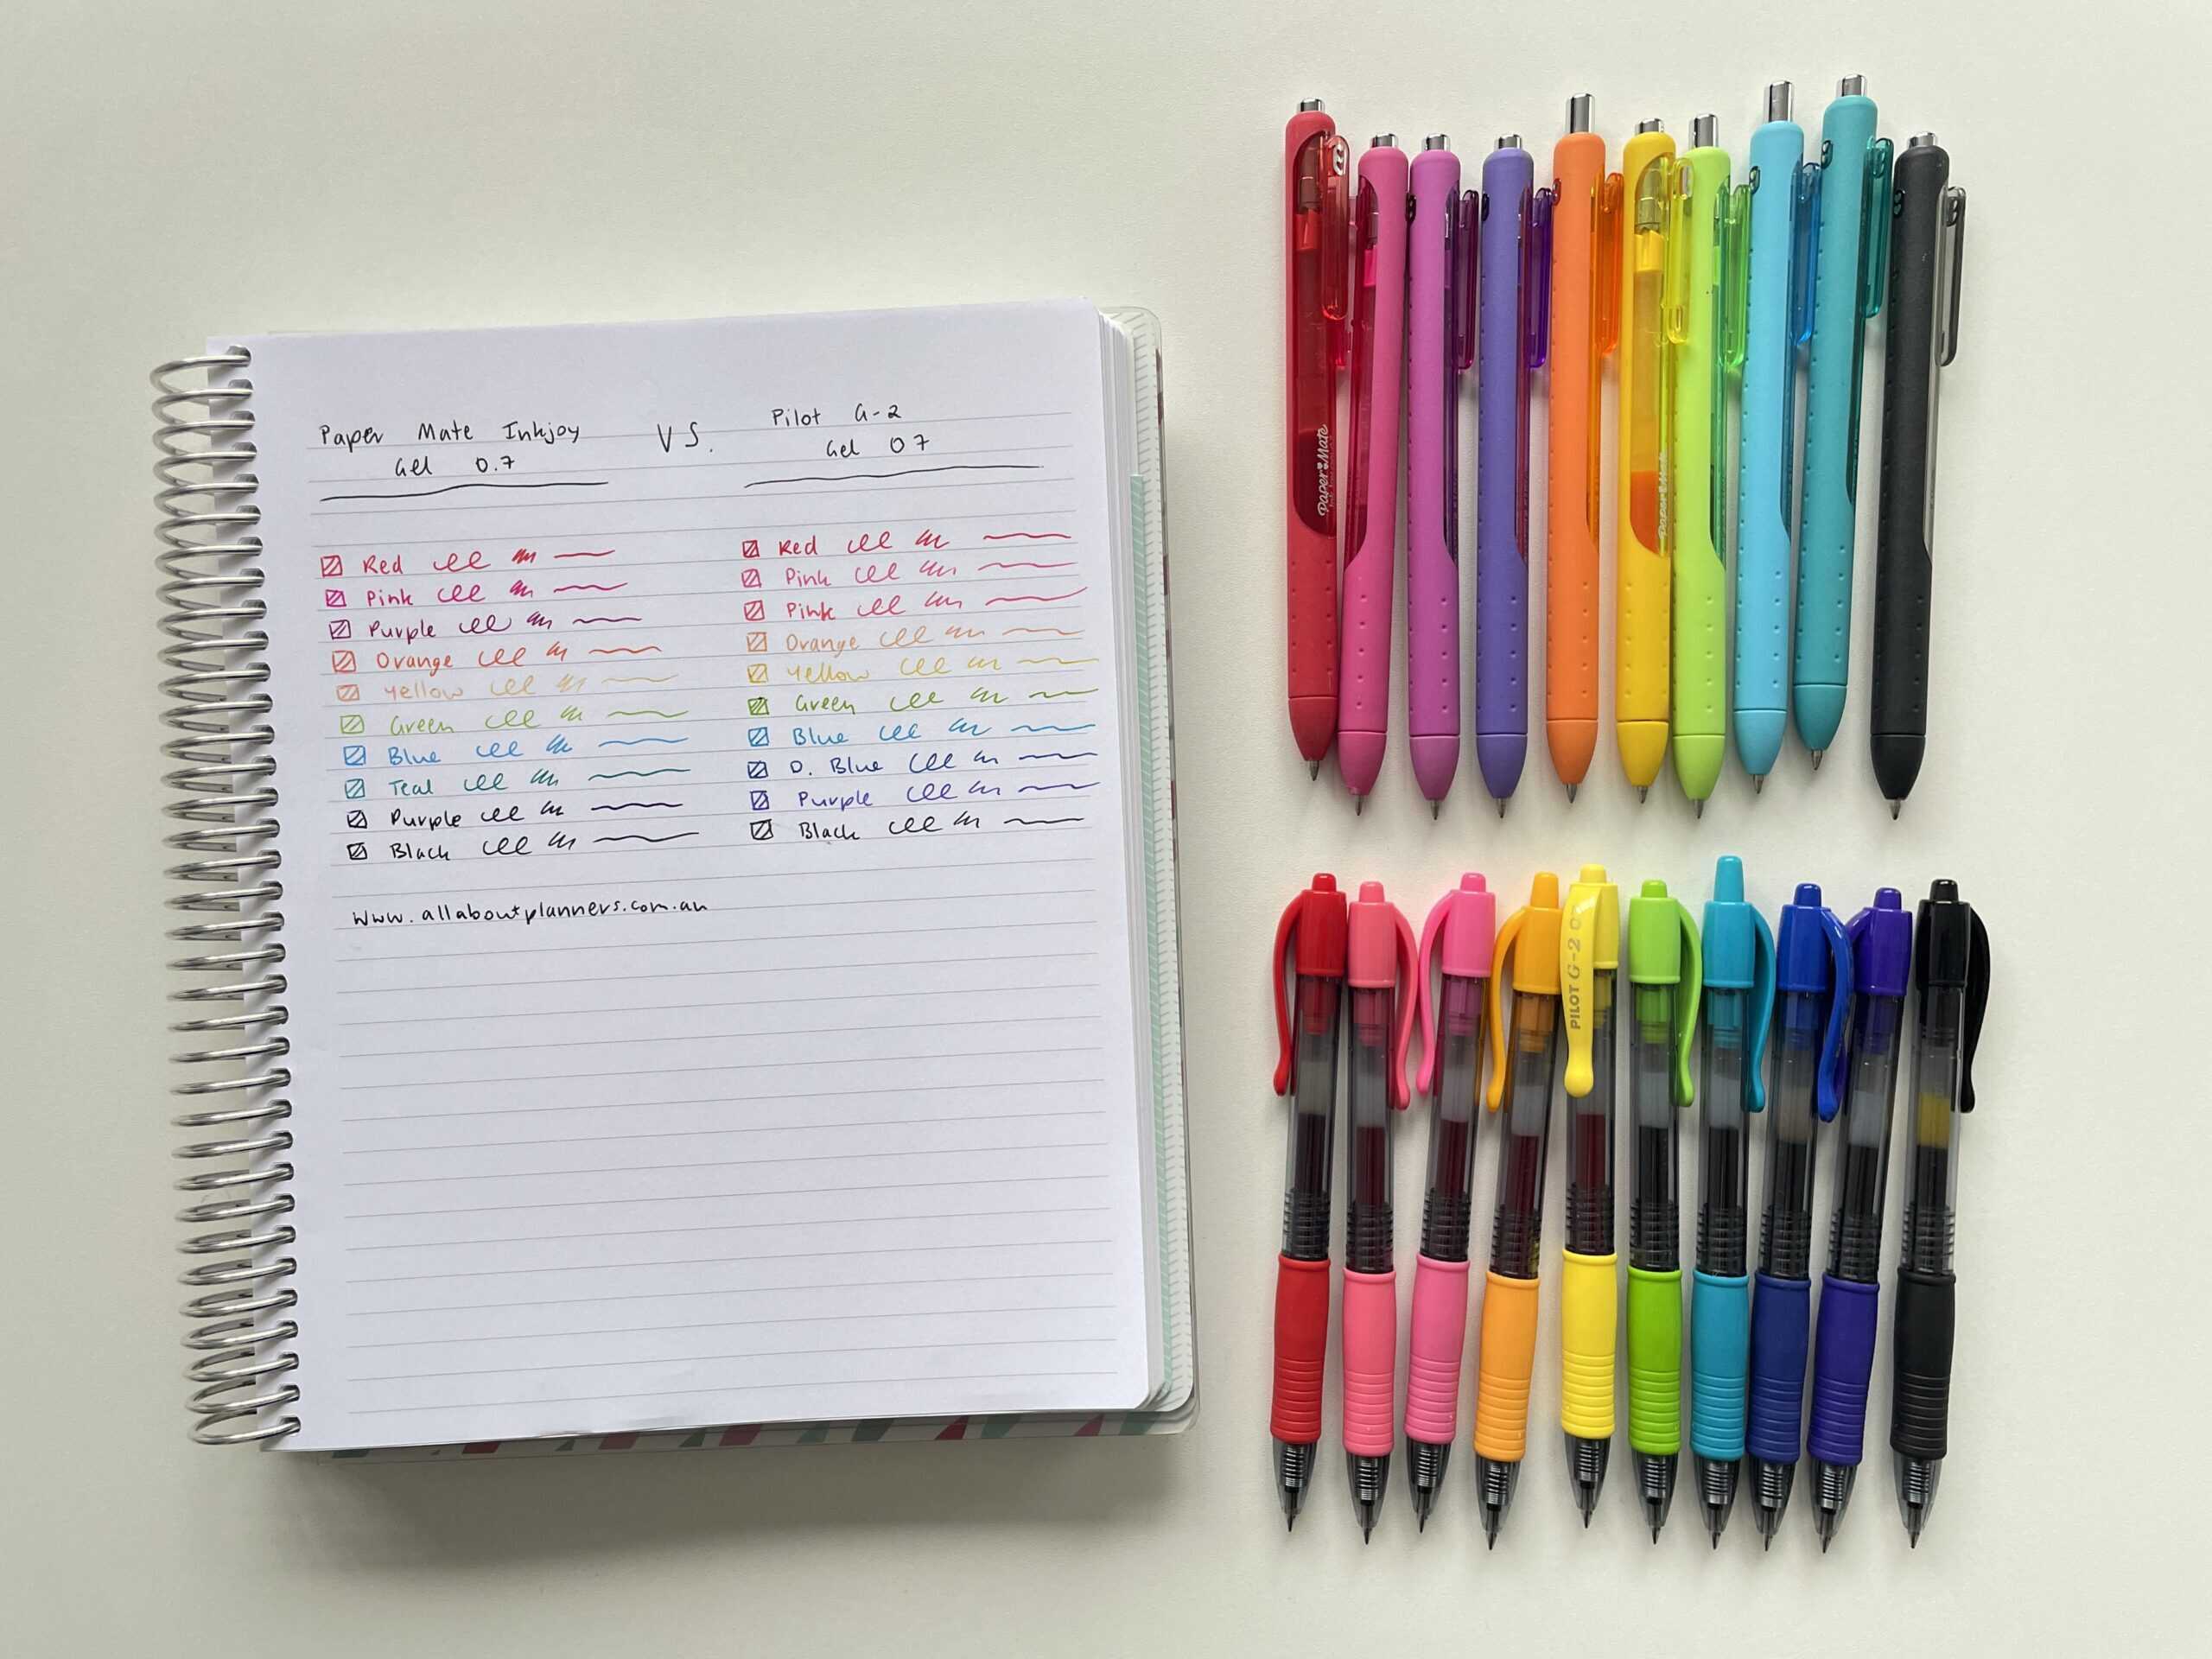 Paper Mate Inkjoy
Gel 0.7
VS.
Pilot G-2
Gel 07
Red
Pink
Purple
Orange
Yellow
Green
Blue
Teal
Purple
Black
Red
Pink
Pink
Orange
Yellow
Green
Blue
D. Blue
Purple
Black
www.allaboutplanners.com.au
Paper Mate
Paper Mate
PILOT G-2